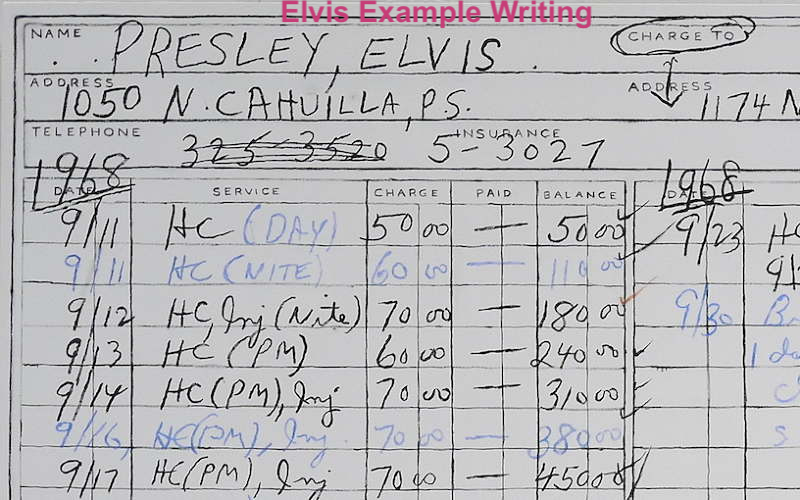 Elvis Example Writing
NAME PRESLEY, ELVIS . CHARGE TO
ADDRESS 1050 N. CAHUILLA, P.S. ADDRESS 1174 N
TELEPHONE 325-3520 INSURANCE 5-3027
1968 1968
DATE SERVICE CHARGE PAID BALANCE DATE
9/11 HC (DAY) 50 00 — 50 00 9/23 HC
9/11 HC (NITE) 60 00 — 110 00
9/12 HC, Inj (Nite) 70 00 — 180 00 9/30
9/13 HC (PM) 60 00 — 240 00 1
9/14 HC (PM), Inj 70 00 — 310 00
9/16, HC (PM), Inj. 70 00 — 380 00
9/17 HC (PM), Inj 70 00 — 450 00